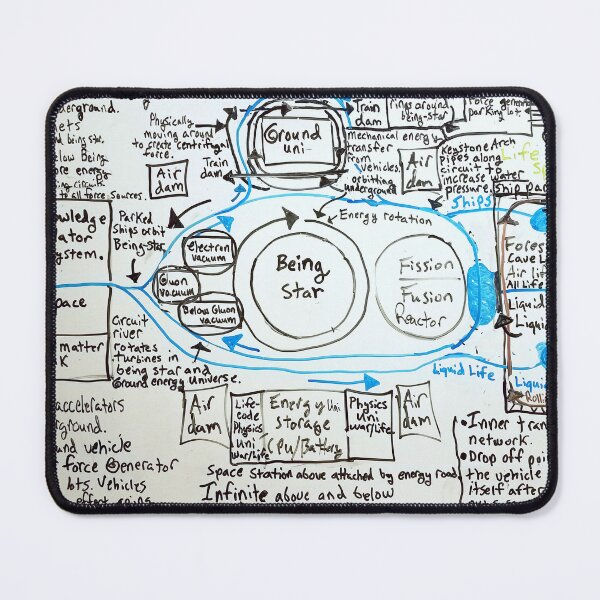 derground.
Physically
moving around
to create centrifugal
force.
Train
dam
Air
dam
Ground
uni-
Train
dam
mechanical energy
transfer
from
vehicles.
orbitting
underground
rings around
being-star
Force generator
parking lot.
Air
dam
Keystone Arch
pipes along
circuit to
increase water
pressure.
Ships
ship par
Life
below Being
ore energy
to all force sources.
Energy rotation
Parked
ships orbit
Being-Star
system.
pace
matter
K
electron
vacuum
Gluon
vacuum
Below Gluon
vacuum
Being
Star
Fission
Fusion
Reactor
Fores
Cave Li
Air life
All life
Liquid
Liqui
Liquid
Rolli
Circuit
river
rotates
turbines in
being star and
Ground energy universe.
Liquid Life
accelerators
ground.
und vehicle
force Generator
lots. Vehicles
Air
dam
Life-
code
Physics
Uni
War/life
Energy Uni
storage
CPU/Battery
Physics
Uni
war/life
Air
dam
Space Station above attached by energy road.
Infinite above and below
• Inner tran
network.
• Drop off poi
the vehicle
itself after